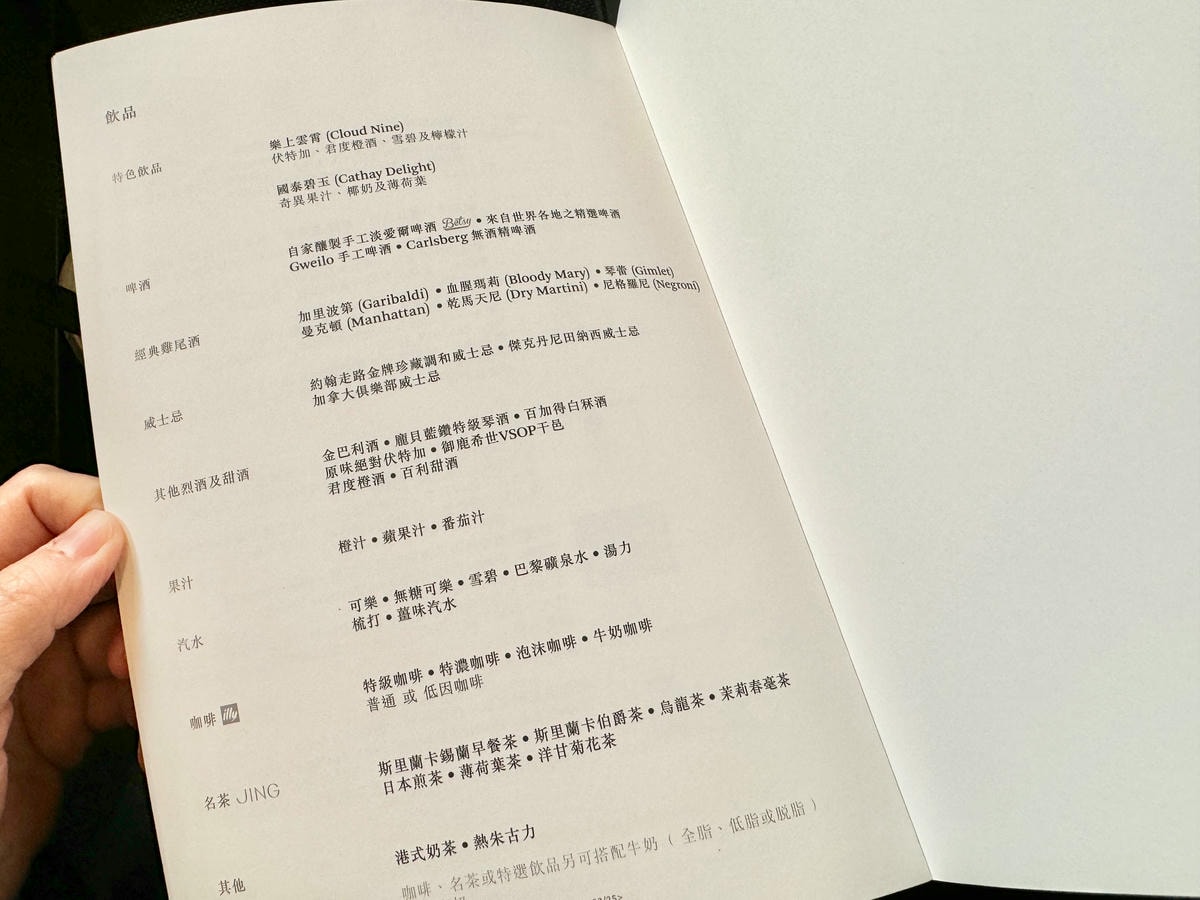 飲品
特色飲品
樂上雲霄 (Cloud Nine)
伏特加、君度橙酒、雪碧及檸檬汁
國泰碧玉 (Cathay Delight)
奇異果汁、椰奶及薄荷葉
啤酒
自家釀製手工淡愛爾啤酒 Betsy • 來自世界各地之精選啤酒
Gweilo 手工啤酒 • Carlsberg 無酒精啤酒
經典雞尾酒
加里波第 (Garibaldi) • 血腥瑪莉 (Bloody Mary) • 琴蕾 (Gimlet)
曼克頓 (Manhattan) • 乾馬天尼 (Dry Martini) • 尼格羅尼 (Negroni)
威士忌
約翰走路金牌珍藏調和威士忌 • 傑克丹尼田納西威士忌
加拿大俱樂部威士忌
其他烈酒及甜酒
金巴利酒 • 龐貝藍鑽特級琴酒 • 百加得白冧酒
原味絕對伏特加 • 御鹿希世VSOP干邑
君度橙酒 • 百利甜酒
果汁
橙汁 • 蘋果汁 • 番茄汁
汽水
可樂 • 無糖可樂 • 雪碧 • 巴黎礦泉水 • 湯力
梳打 • 薑味汽水
咖啡 illy
特級咖啡 • 特濃咖啡 • 泡沫咖啡 • 牛奶咖啡
普通 或 低因咖啡
名茶 JING
斯里蘭卡錫蘭早餐茶 • 斯里蘭卡伯爵茶 • 烏龍茶 • 茉莉春毫茶
日本煎茶 • 薄荷葉茶 • 洋甘菊花茶
其他
港式奶茶 • 熱朱古力
咖啡、名茶或特選飲品另可搭配牛奶 ( 全脂、低脂或脱脂 )